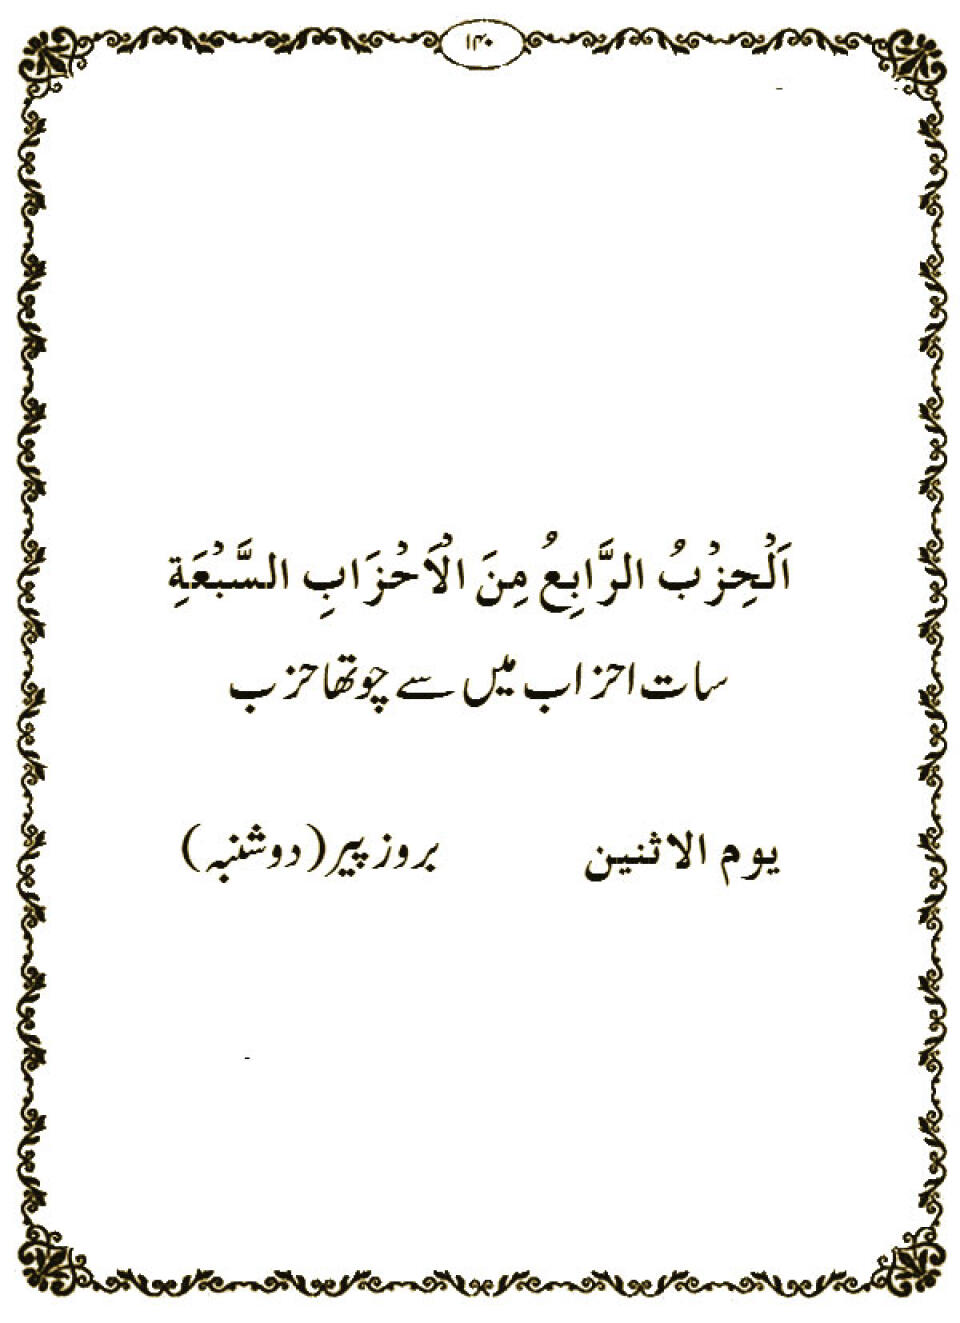 ۱۴۰
اَلْحِزْبُ الرَّابِعُ مِنَ الْاَحْزَابِ السَّبْعَةِ
سات احزاب میں سے چوتھا حزب
یوم الاثنین بروز پیر (دوشنبہ)